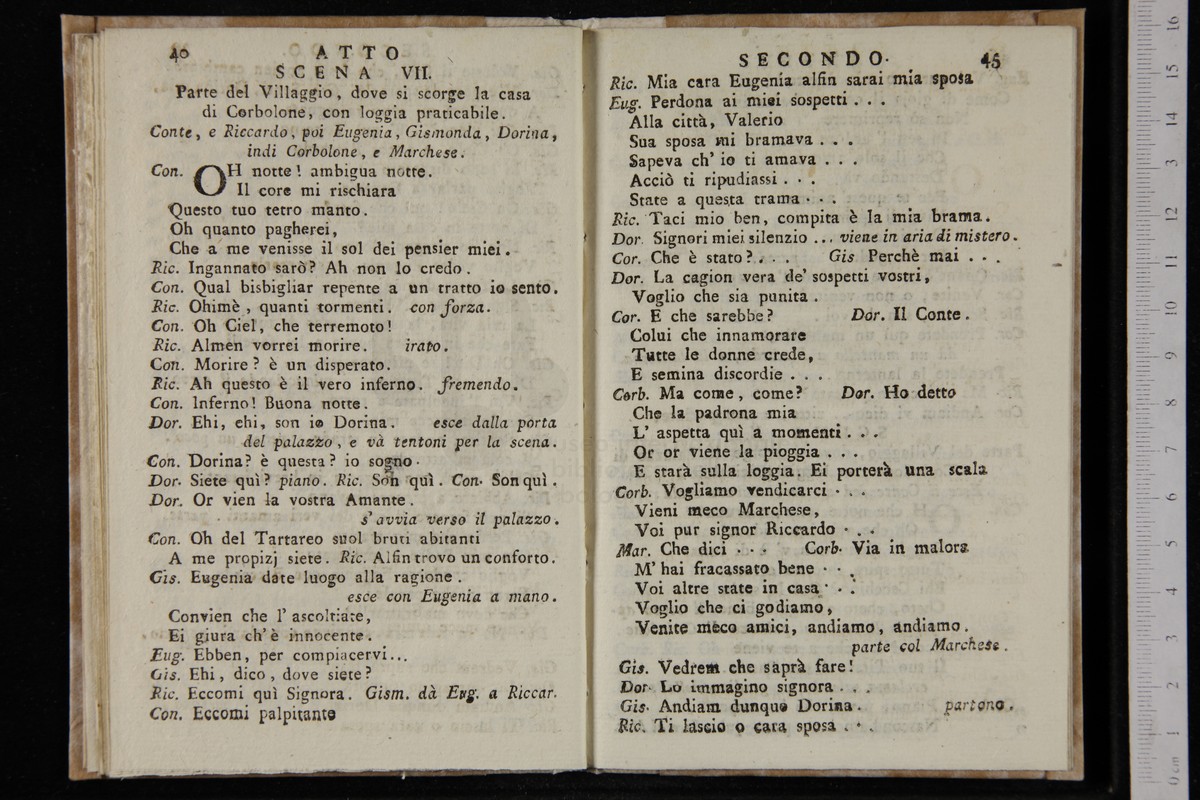 40 ATTO
SCENA VII.
Parte del Villaggio, dove si scorge la casa
di Corbolone, con loggia praticabile.
Conte, e Riccardo, poi Eugenia, Gismonda, Dorina,
indi Corbolone, e Marchese.
Con. OH notte! ambigua notte.
Il core mi rischiara
Questo tuo tetro manto.
Oh quanto pagherei,
Che a me venisse il sol dei pensier miei.
Ric. Ingannato sarò? Ah non lo credo.
Con. Qual bisbigliar repente a un tratto io sento.
Ric. Ohimè, quanti tormenti. con forza.
Con. Oh Ciel, che terremoto!
Ric. Almen vorrei morire. irato.
Con. Morire? è un disperato.
Ric. Ah questo è il vero inferno. fremendo.
Con. Inferno! Buona notte.
Dor. Ehi, ehi, son io Dorina. esce dalla porta
del palazzo, e và tentoni per la scena.
Con. Dorina? è questa? io sogno.
Dor. Siete quì? piano. Ric. Son quì. Con. Son quì.
Dor. Or vien la vostra Amante.
s'avvia verso il palazzo.
Con. Oh del Tartareo suol bruti abitanti
A me propizj siete. Ric. Alfin trovo un conforto.
Gis. Eugenia date luogo alla ragione.
esce con Eugenia a mano.
Convien che l'ascoltiate,
Ei giura ch'è innocente.
Eug. Ebben, per compiacervi...
Gis. Ehi, dico, dove siete?
Ric. Eccomi quì Signora. Gism. dà Eug. a Riccar.
Con. Eccomi palpitante
SECONDO. 45
Ric. Mia cara Eugenia alfin sarai mia sposa
Eug. Perdona ai miei sospetti . . .
Alla città, Valerio
Sua sposa mi bramava . . .
Sapeva ch'io ti amava . . .
Acciò ti ripudiassi . . .
State a questa trama . . .
Ric. Taci mio ben, compita è la mia brama.
Dor. Signori miei silenzio ... viene in aria di mistero.
Cor. Che è stato? . . . Gis Perchè mai . . .
Dor. La cagion vera de' sospetti vostri,
Voglio che sia punita.
Cor. E che sarebbe? Dor. Il Conte.
Colui che innamorare
Tutte le donne crede,
E semina discordie . . .
Corb. Ma come, come? Dor. Ho detto
Che la padrona mia
L'aspetta quì a momenti . . .
Or or viene la pioggia . . .
E starà sulla loggia. Ei porterà una scala
Corb. Vogliamo vendicarci . . .
Vieni meco Marchese,
Voi pur signor Riccardo . . .
Mar. Che dici . . . Corb. Via in malora
M'hai fracassato bene . . .
Voi altre state in casa . . .
Voglio che ci godiamo,
Venite meco amici, andiamo, andiamo.
parte col Marchese.
Gis. Vedrem che saprà fare!
Dor. Lo immagino signora . . .
Gis. Andiam dunque Dorina. partono.
Ric. Ti lascio o cara sposa . . .
16
15
14
13
12
11
10
9
8
7
6
5
4
3
2
1
0 cm